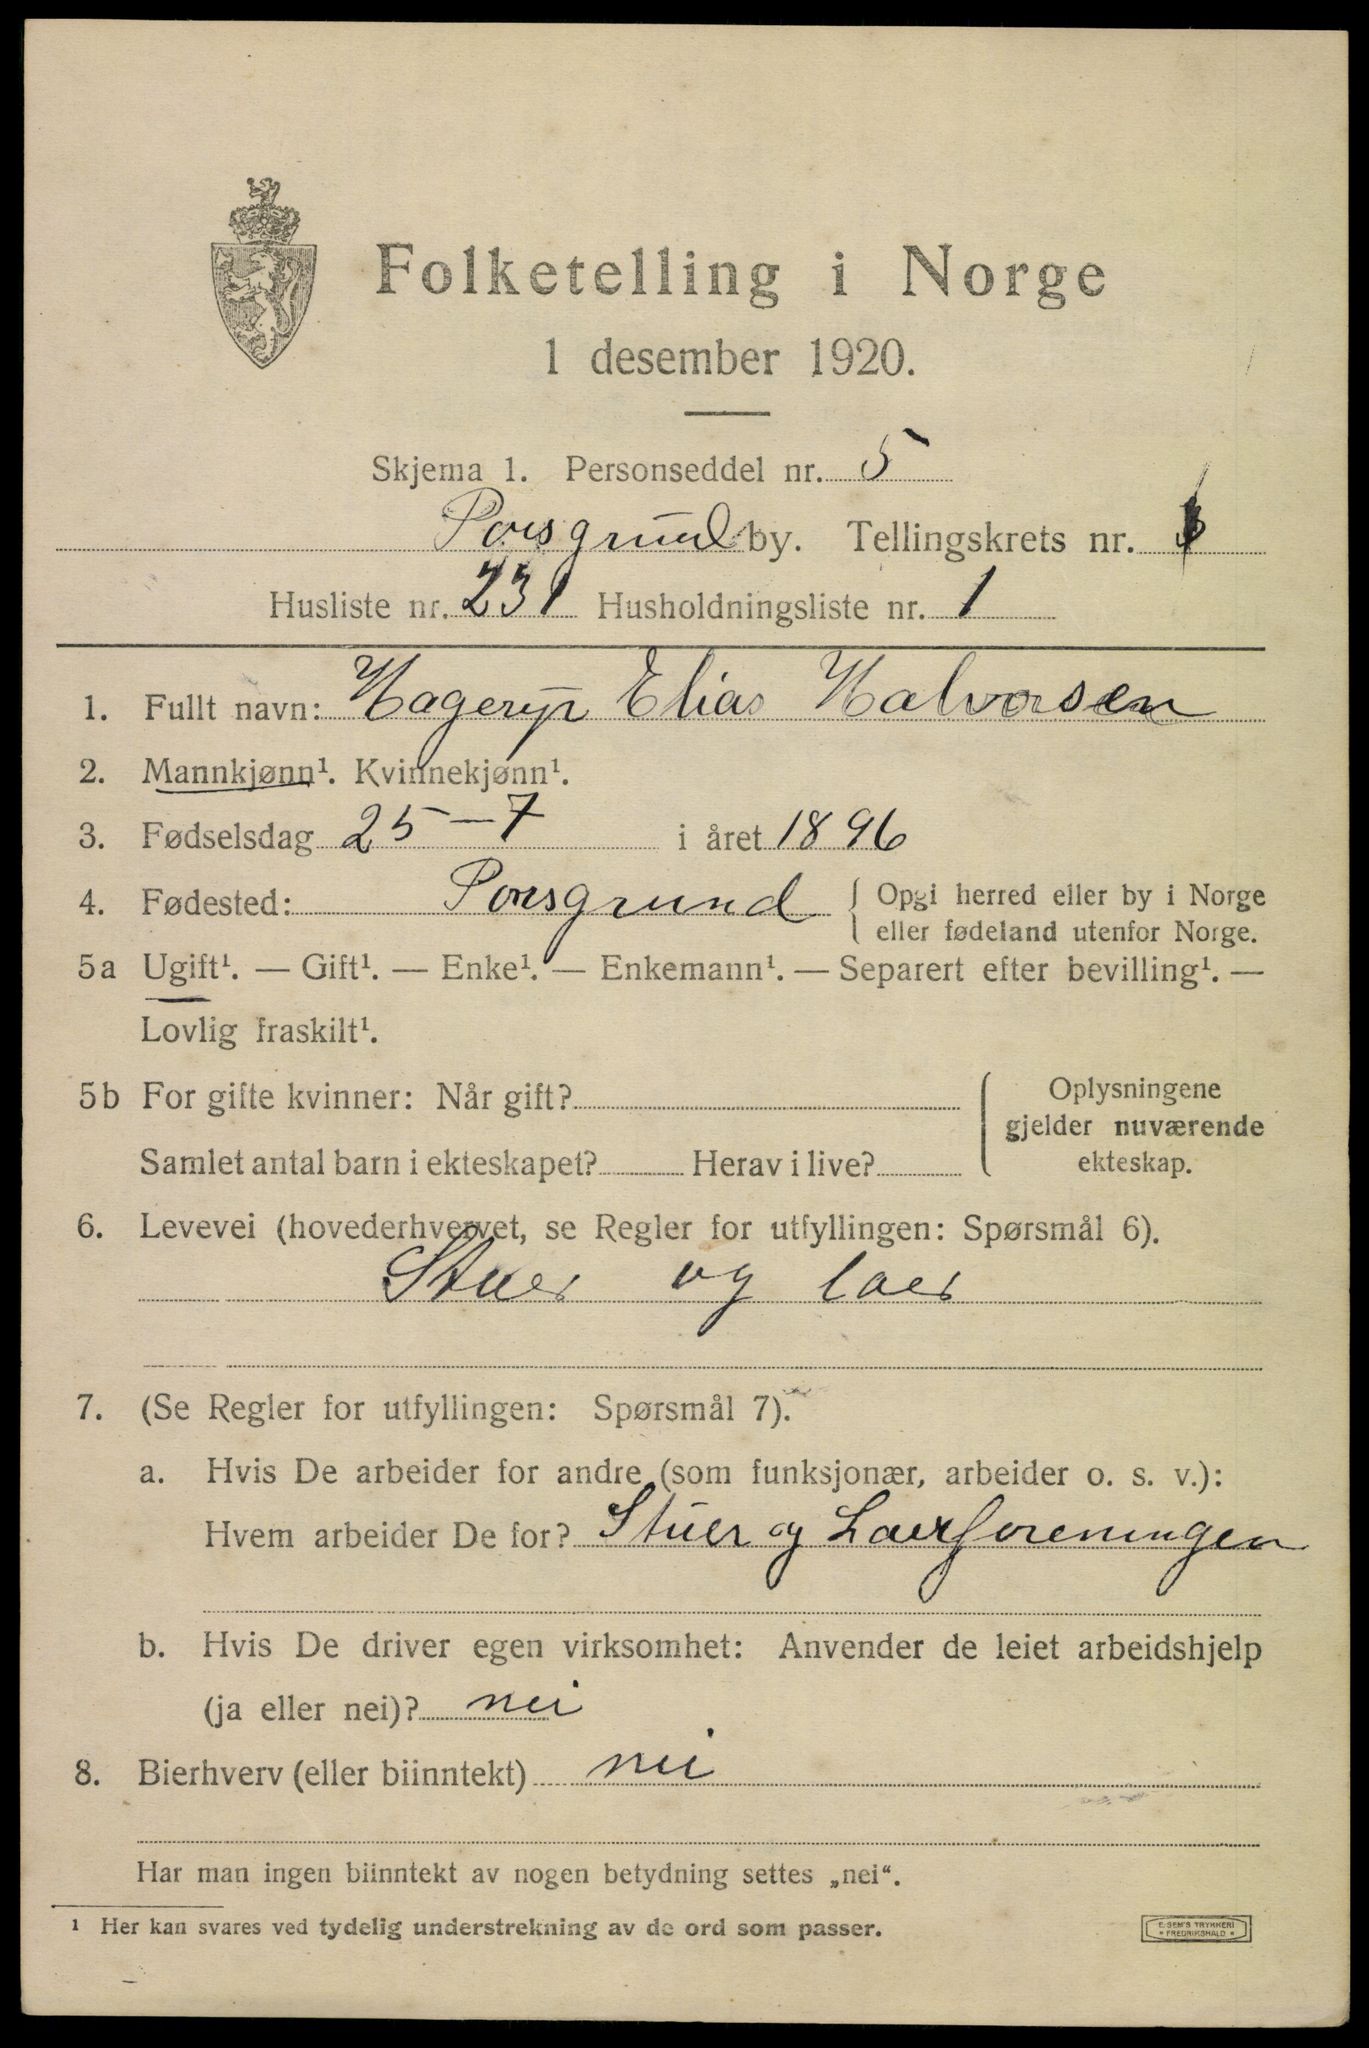 Folketelling i Norge
1 desember 1920.
Skjema 1. Personseddel nr. 5
Porsgrund by. Tellingskrets nr.
Husliste nr. 231 Husholdningsliste nr. 1
1. Fullt navn: Hagerup Elias Halvorsen
2. Mannkjønn¹. Kvinnekjønn¹.
3. Fødselsdag 25-7 i året 1896
4. Fødested: Porsgrund { Opgi herred eller by i Norge
eller fødeland utenfor Norge.
5a Ugift¹. — Gift¹. — Enke¹. — Enkemann¹. — Separert efter bevilling¹. —
Lovlig fraskilt¹.
5b For gifte kvinner: Når gift?
Samlet antal barn i ekteskapet? Herav i live?
Oplysningene
gjelder nuværende
ekteskap.
6. Levevei (hovederhvervet, se Regler for utfyllingen: Spørsmål 6).
Stuer og laer
7. (Se Regler for utfyllingen: Spørsmål 7).
a. Hvis De arbeider for andre (som funksjonær, arbeider o. s. v.):
Hvem arbeider De for? Stuer og Laerforeningen
b. Hvis De driver egen virksomhet: Anvender de leiet arbeidshjelp
(ja eller nei)? nei
8. Bierhverv (eller biinntekt) nei
Har man ingen biinntekt av nogen betydning settes „nei“.
¹ Her kan svares ved tydelig understrekning av de ord som passer.
E. SEM'S TRYKKERI
* FREDRIKSHALD *